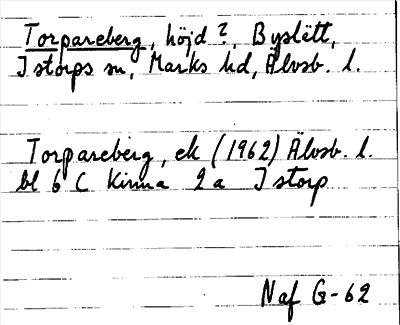 Torpareberg, höjd ?, Byslätt,
Istorps sn, Marks hd, Älvsb. l.
Torpareberg, ek (1962) Älvsb. l.
bl 6 C Kinna 2a Istorp
Naf G-62